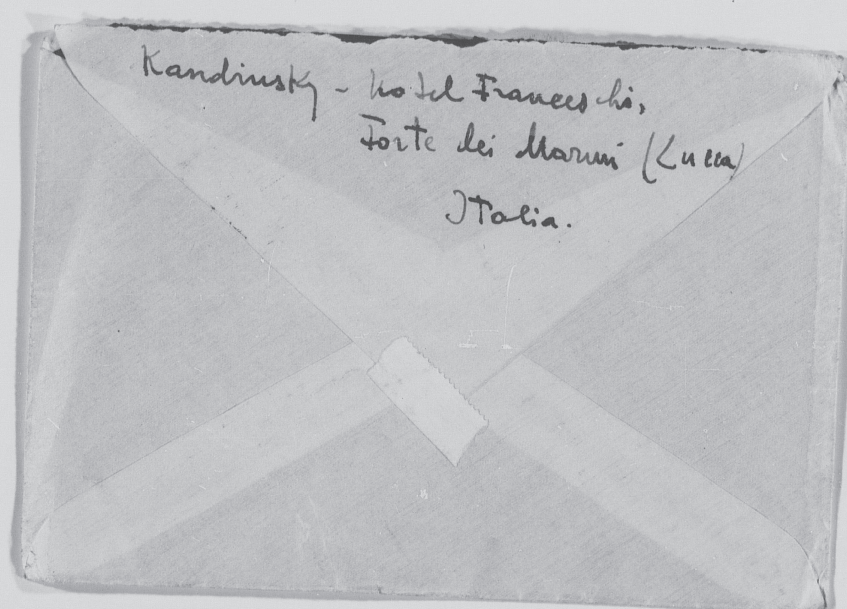 Kandinsky - Hotel Franceschi,
Forte dei Marmi (Lucca)
Italia.